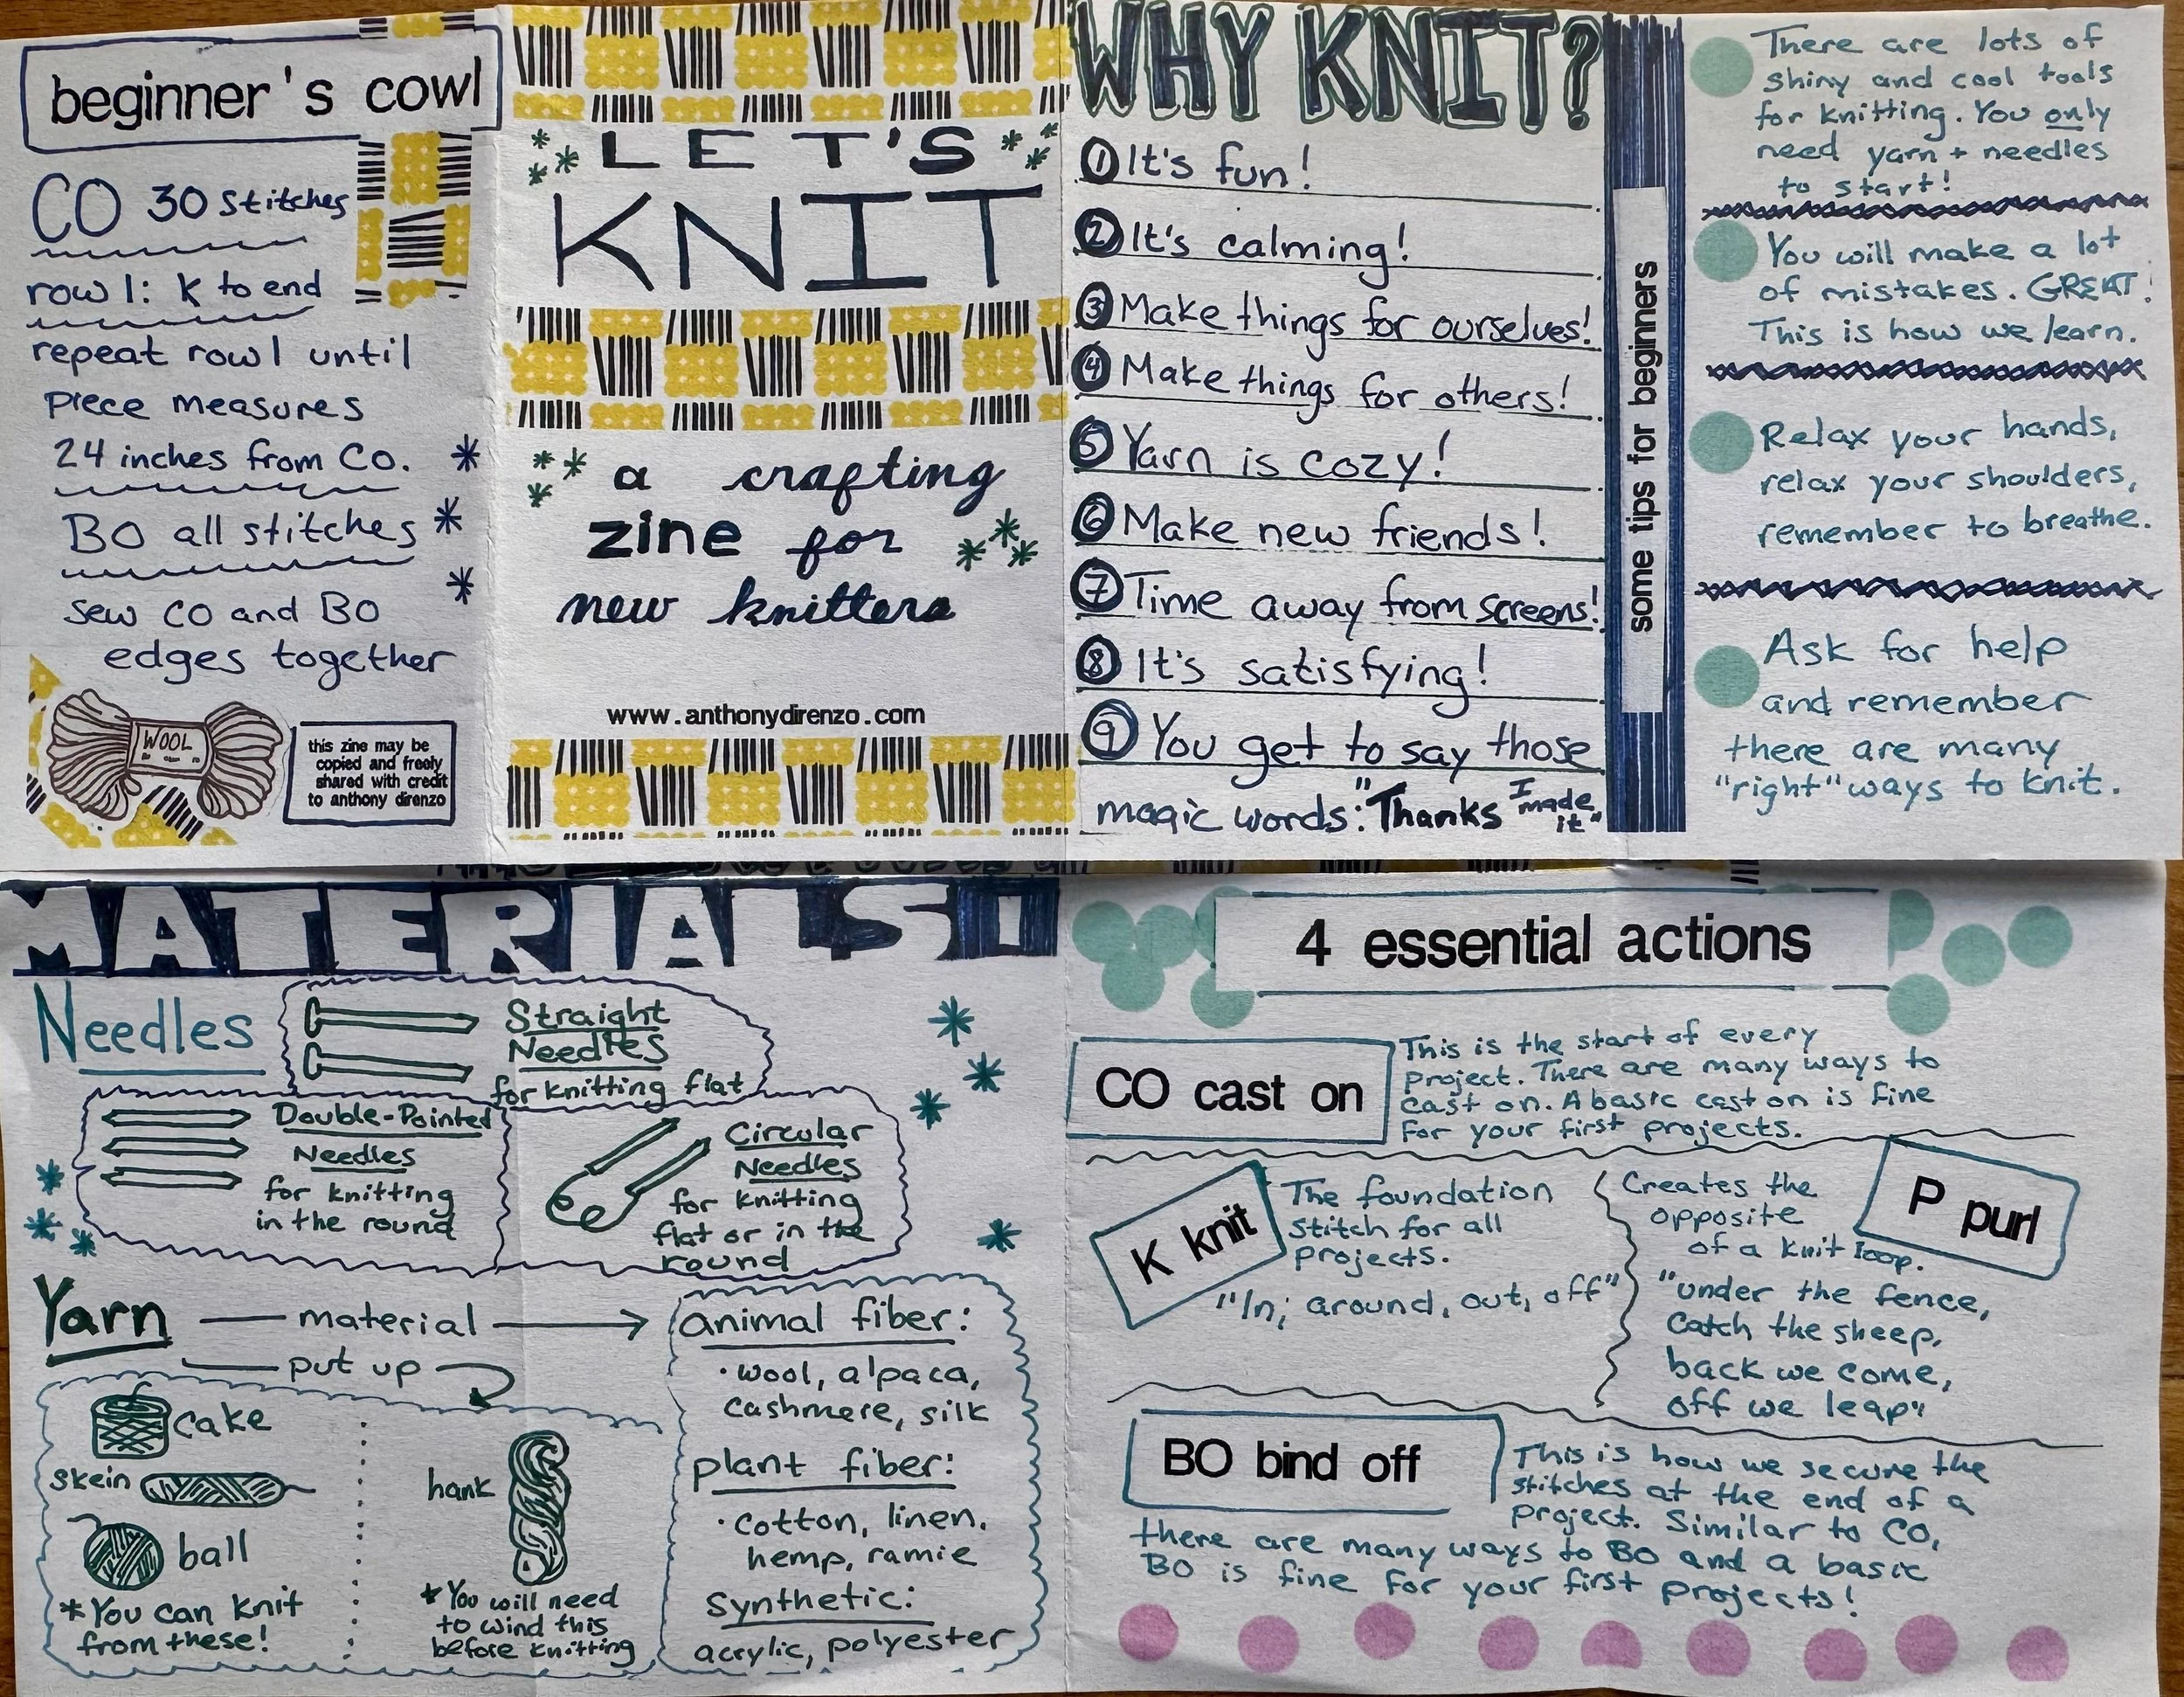 beginner's cowl
CO 30 stitches
row 1: K to end
repeat row 1 until
piece measures
24 inches from CO.
BO all stitches
sew CO and BO
edges together
WOOL
this zine may be
copied and freely
shared with credit
to anthony direnzo
LET'S
KNIT
a crafting
zine for
new knitters
www.anthonydirenzo.com
WHY KNIT?
1 It's fun!
2 It's calming!
3 Make things for ourselves!
4 Make things for others!
5 Yarn is cozy!
6 Make new friends!
7 Time away from screens!
8 It's satisfying!
9 You get to say those
magic words: "Thanks I made it"
some tips for beginners
There are lots of
shiny and cool tools
for knitting. You only
need yarn + needles
to start!
You will make a lot
of mistakes. GREAT!
This is how we learn.
Relax your hands,
relax your shoulders,
remember to breathe.
Ask for help
and remember
there are many
"right" ways to knit.
MATERIALS!
Needles
Straight
Needles
for knitting flat
Double-Pointed
Needles
for knitting
in the round
Circular
Needles
for knitting
flat or in the
round
Yarn
material
put up
cake
skein
ball
*You can knit
from these!
hank
*You will need
to wind this
before knitting
animal fiber:
·wool, alpaca,
cashmere, silk
plant fiber:
·cotton, linen,
hemp, ramie
Synthetic:
acrylic, polyester
4 essential actions
CO cast on
This is the start of every
project. There are many ways to
cast on. A basic cast on is fine
for your first projects.
K knit
The foundation
stitch for all
projects.
"In, around, out, off"
P purl
Creates the
opposite
of a knit loop.
"under the fence,
Catch the sheep,
back we come,
off we leap"
BO bind off
This is how we secure the
stitches at the end of a
project. Similar to CO,
there are many ways to BO and a basic
BO is fine for your first projects!